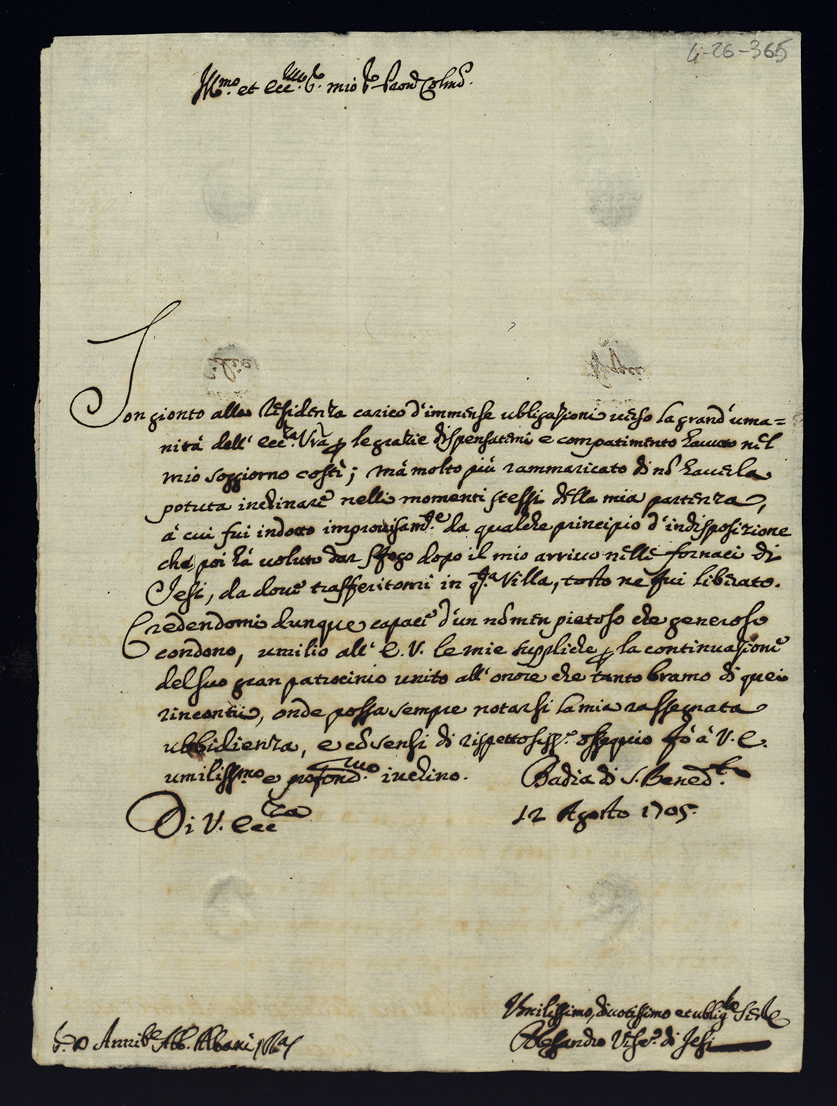 4-26-365
Ill.mo et Ecc.mo S.r mio S.r Pad.n Col.mo
Son gionto alla residenza carico d'immense ubligazioni verso la grand'uma=
nità dell'Ecc.za V.ra p le grazie dispensatemi e compatimento havuto nel
mio soggiorno costì; mà molto più rammaricato di nō haverla
potuta inchinare nelli momenti stessi della mia partenza,
à cui fui indotto improvisam.te da qualche principio d'indisposizione
che poi hà voluto dar sfogo dopo il mio arrivo nelle fornaci di
Jesi, da dove trasferitomi in q.ta Villa, tosto ne fui liberato.
Credendomi dunque capace d'un nō men pietoso che generoso
condono, umilio all'E.V. le mie suppliche p la continuazione
del suo gran patrocinio unito all'onore che tanto bramo di quei
rincontri, onde possa sempre notarsi la mia rassegnata
ubbidienza, e cō sensi di rispettosiss.o ossequio fò à V.E.
umiliss.mo e profond.mo inchino. Badia di S. Bened.to
Di V. Ecc.za 12 Agosto 1705.
Umilissimo, divotissimo et ublig.mo Ser.re
Alessandro Vesc.o di Jesi
S. D. Annib.e Ab. Albani